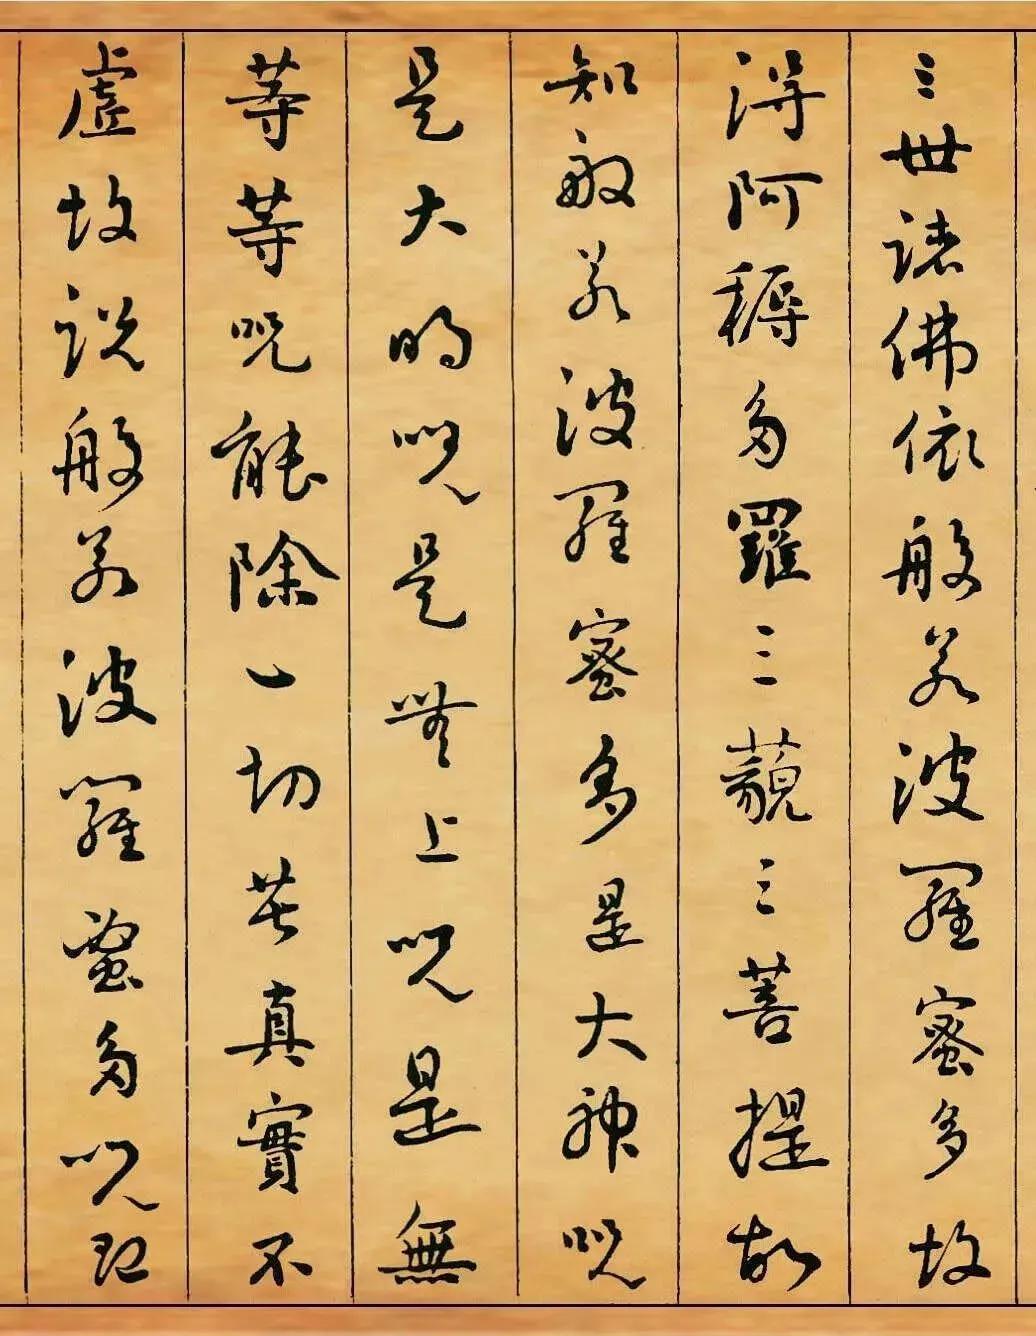 三世諸佛依般若波羅蜜多故
得阿耨多羅三藐三菩提故
知般若波羅蜜多是大神咒
是大明咒是無上咒是無
等等咒能除一切苦真實不
虛故說般若波羅蜜多咒即